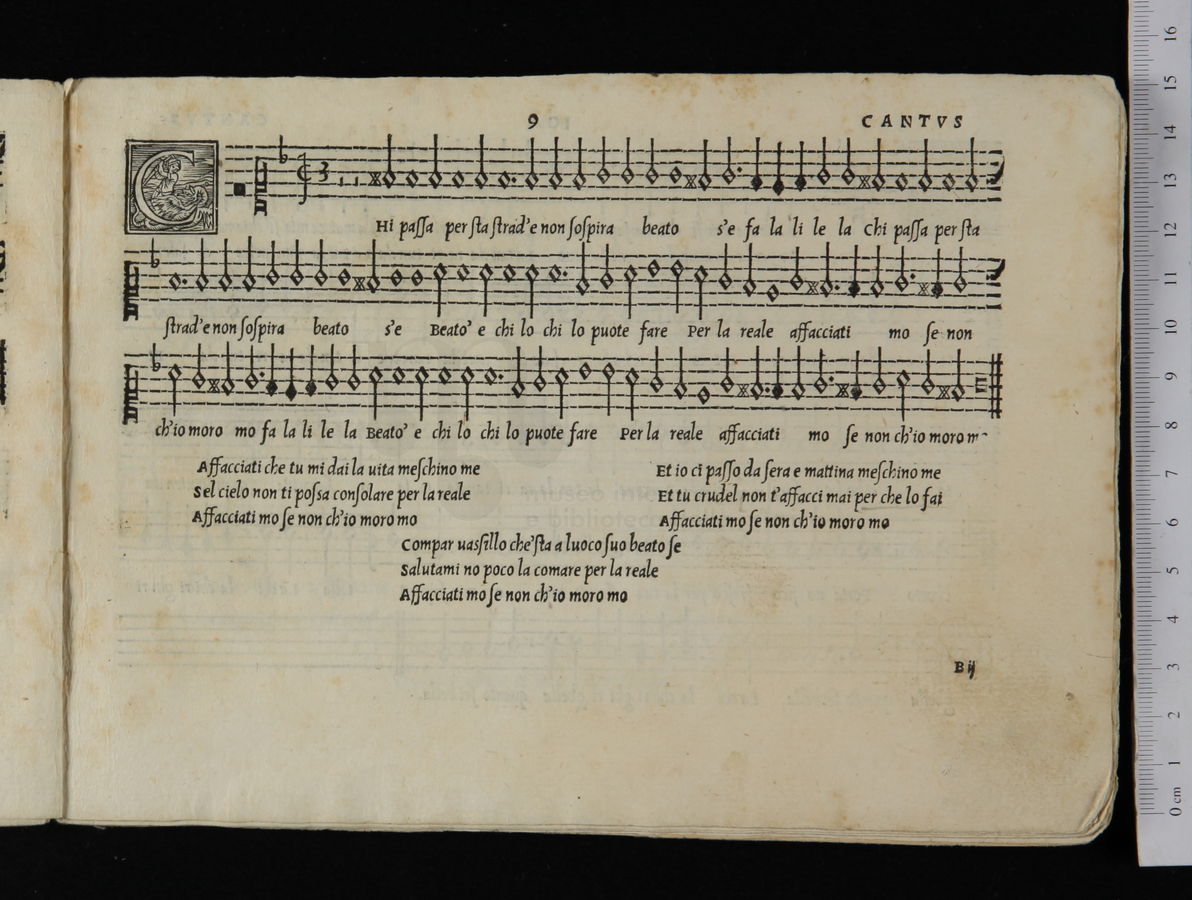 9 CANTVS
CHi paſſa per ſta ſtrad'e non ſoſpira beato s'e fa la li le la Chi paſſa per ſta
ſtrad'e non ſoſpira beato s'e Beato' e chi lo chi lo puote fare Per la reale affacciati mo ſe non
ch'io moro mo fa la li le la Beato' e chi lo chi lo puote fare Per la reale affacciati mo ſe non ch'io moro m~
Affacciati che tu mi dai la uita meſchino me
Sel cielo non ti poſsa conſolare per la reale
Affacciati mo ſe non ch'io moro mo
Et io ci paſſo da ſera e mattina meſchino me
Et tu crudel non t'affacci mai per che lo fai
Affacciati mo ſe non ch'io moro mo
Compar uasſillo che'ſta a luoco ſuo beato ſe
Salutami no poco la comare per la reale
Affacciati mo ſe non ch'io moro mo
B ij
0 cm 1 2 3 4 5 6 7 8 9 10 11 12 13 14 15 16